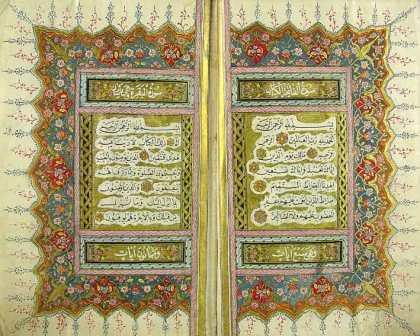 سورة الفاتحة الكتاب
بسم الله الرحمن الرحيم
الحمد لله رب العالمين الرحمن
الرحيم مالك يوم الدين اياك
نعبد واياك نستعين
اهدنا الصراط المستقيم
صراط الذين انعمت عليهم غير
المغضوب عليهم ولا الضالين
وهي سبع آيات
سورة البقرة
بسم الله الرحمن الرحيم
الم ذلك الكتاب لا ريب فيه
هدى للمتقين الذين يؤمنون
بالغيب ويقيمون الصلوة ومما رزقناهم
ينفقون والذين يؤمنون
بما انزل اليك وما انزل
من قبلك وبالاخرة هم يوقنون
آيات